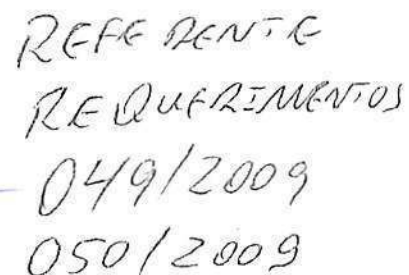 REFERENTE
REQUERIMENTOS
049/2009
050/2009